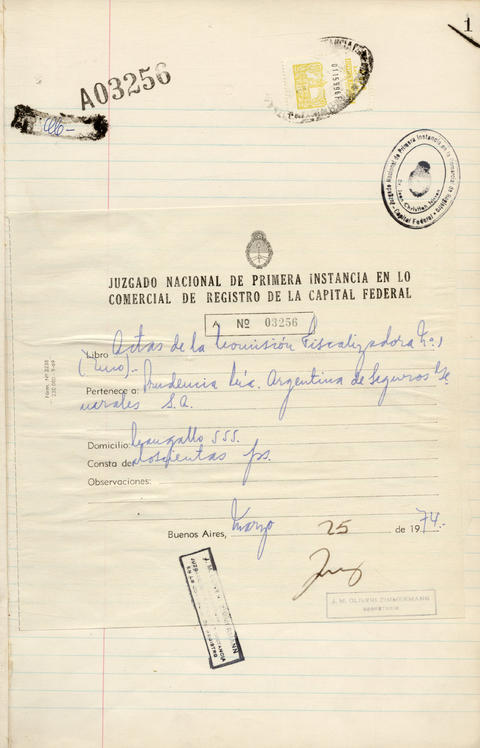 1
A03256
0115996
Juzgado Nacional de Primera Instancia en lo Comercial de Registro
- Capital Federal -
JUZGADO NACIONAL DE PRIMERA INSTANCIA EN LO
COMERCIAL DE REGISTRO DE LA CAPITAL FEDERAL
A Nº 03256
Libro Actas de la Comisión Fiscalizadora Nº 1
(Uno)-
Pertenece a: Prudencia Cía. Argentina de Seguros Ge
nerales S.A.
Domicilio: Cangallo 555.
Consta de: doscientas fs.
Observaciones:
Buenos Aires, Marzo 25 de 1974.-
J. M. OLIVERI ZIMMERMANN
SECRETARIO